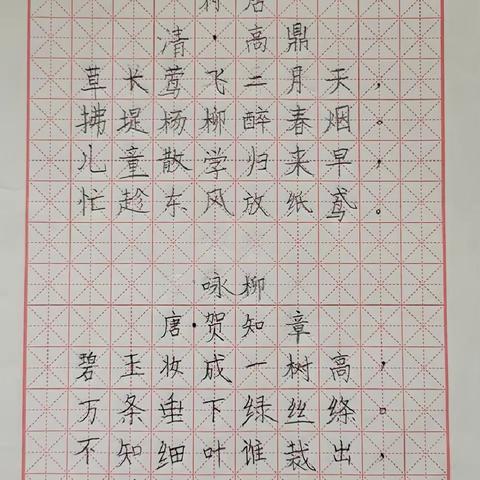 村居
清·高鼎
草长莺飞二月天，
拂堤杨柳醉春烟。
儿童散学归来早，
忙趁东风放纸鸢。
咏柳
唐·贺知章
碧玉妆成一树高，
万条垂下绿丝绦。
不知细叶谁裁出，